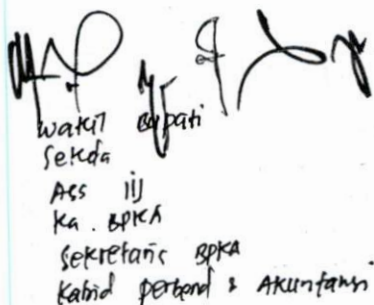 Wakil Bupati
Sekda
Ass iij
Ka. BPKA
Sekretaris BPKA
Kabid perbend & Akuntansi